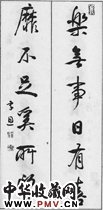 樂無事日有
靡不足奚所
中华收藏网
WWW.PMV.CN